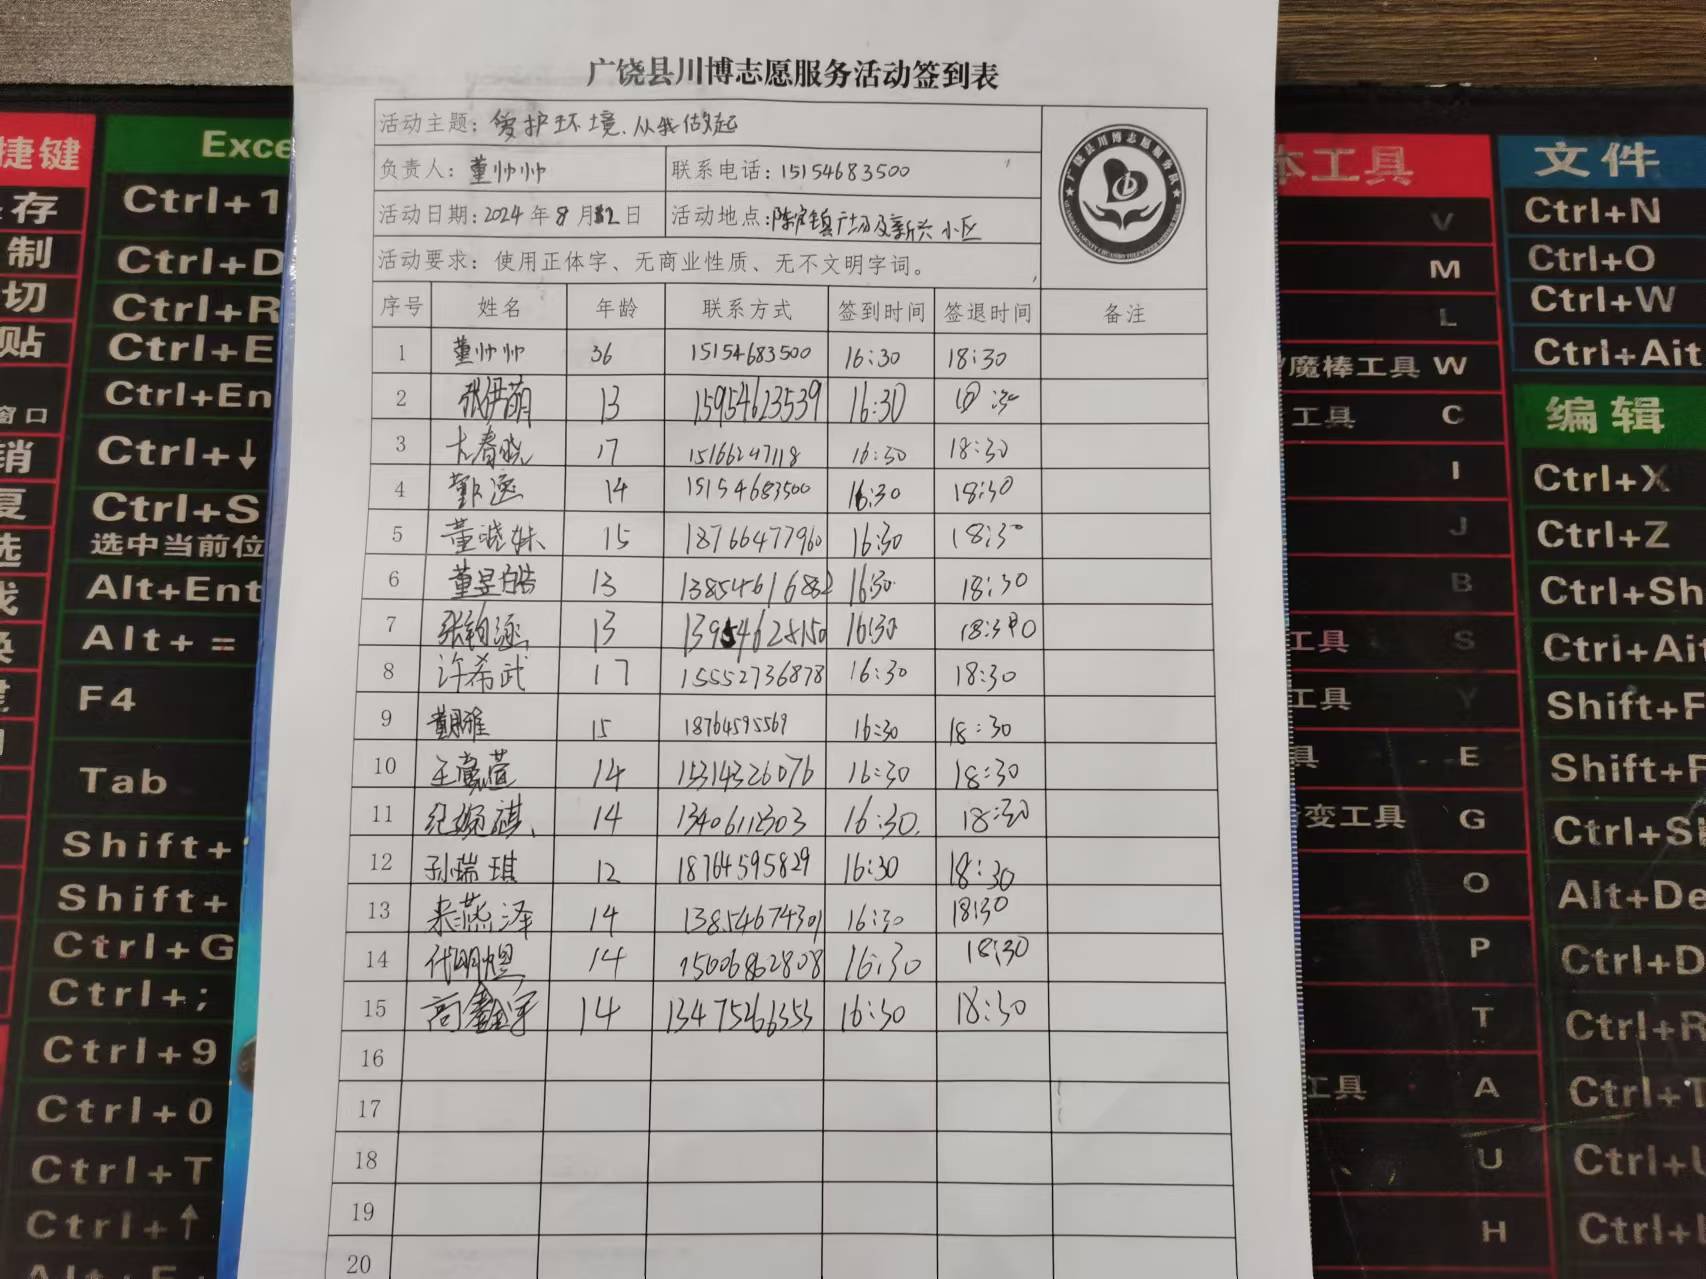 广饶县川博志愿服务活动签到表
活动主题：爱护环境.从我做起
负责人：董帅帅 联系电话：15154683500
活动日期：2024年8月12日 活动地点：陈官镇广场及新兴小区
活动要求：使用正体字、无商业性质、无不文明字词。
广饶县川博志愿服务队
序号 姓名 年龄 联系方式 签到时间 签退时间 备注
1 董帅帅 36 15154683500 16:30 18:30
2 张伊萌 13 15954623539 16:30
3 春晓 17 15166247118 16:30 18:30
4 14 15154683500 16:30 18:30
5 董晓妹 15 18766477960 16:30 18:30
6 董昱皓 13 13854616882 16:30 18:30
7 张钧涵 13 16:30
8 许希武 17 15552736878 16:30 18:30
9 15 18764595569 16:30 18:30
10 王萱 14 15314326076 16:30 18:30
11 纪婉祺 14 13406112303 16:30 18:30
12 孙瑞琪 12 18764595829 16:30 18:30
13 来燕泽 14 13854674301 16:30 18:30
14 代明煜 14 15006862808 16:30 18:30
15 高鑫宇 14 13475266353 16:30 18:30
16
17
18
19
20
捷键
存
制
切
贴
窗口
销
复
选
Exce
Ctrl+1
Ctrl+D
Ctrl+R
Ctrl+E
Ctrl+En
Ctrl+↓
Ctrl+S
选中当前位
Alt+Ent
Alt+=
F4
Tab
Shift+
Shift+
Ctrl+G
Ctrl+;
Ctrl+9
Ctrl+0
Ctrl+T
Ctrl+↑
本工具
V
M
L
魔棒工具 W
工具 C
I
J
B
工具 S
工具 Y
具 E
变工具 G
O
P
T
工具 A
U
H
文件
Ctrl+N
Ctrl+O
Ctrl+W
Ctrl+Ait
编辑
Ctrl+X
Ctrl+Z
Ctrl+Sh
Ctri+Ait
Shift+F
Shift+F
Ctrl+Sh
Alt+De
Ctrl+D
Ctrl+R
Ctrl+T
Ctrl+U
Ctrl+L